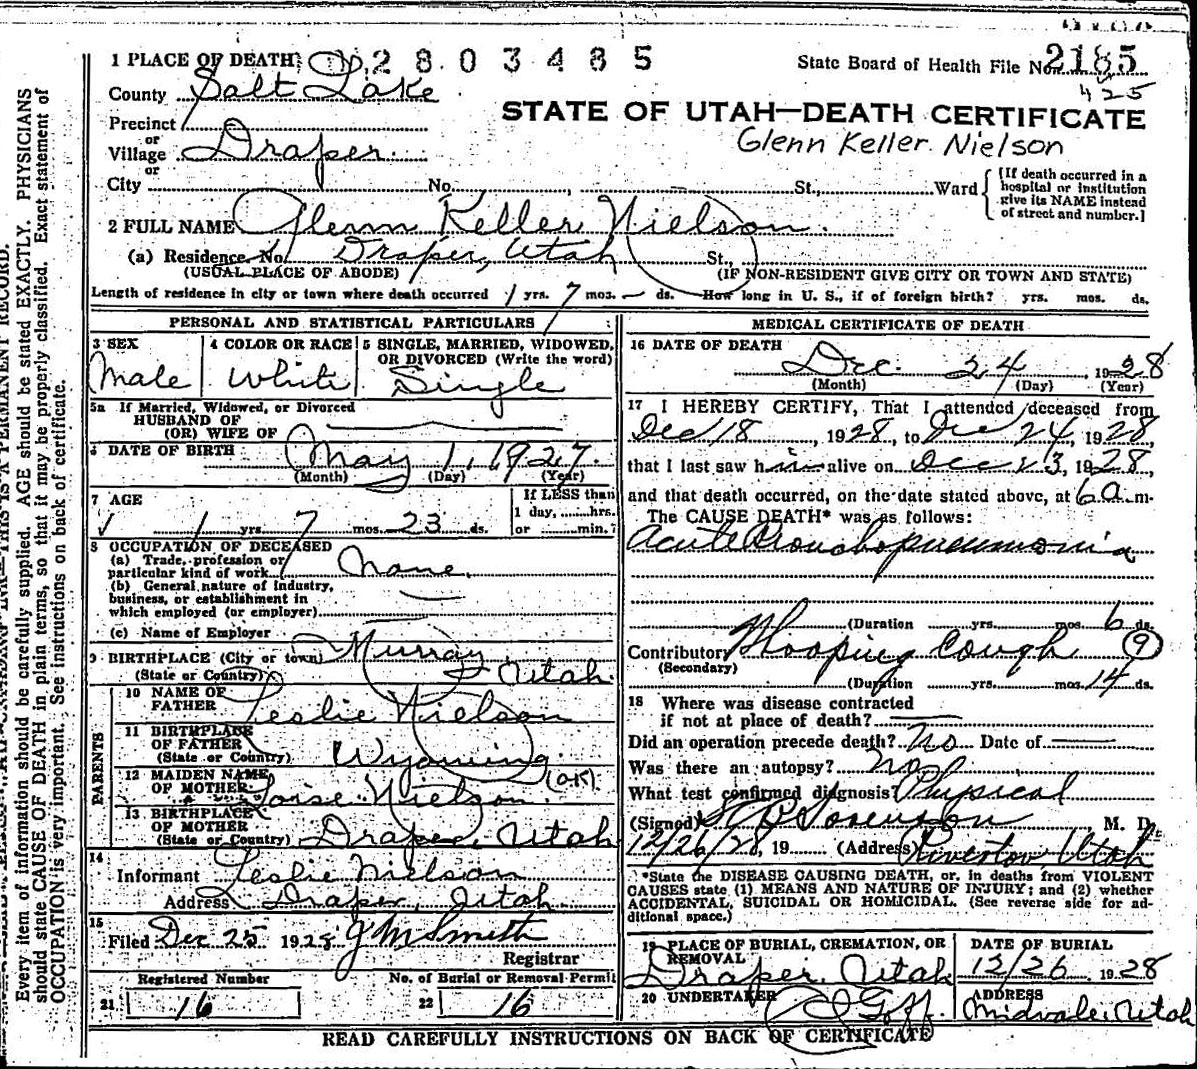 1 PLACE OF DEATH 2803485 State Board of Health File No. 2185
425
County Salt Lake
STATE OF UTAH—DEATH CERTIFICATE
Precinct
or
Village Draper
Glenn Keller Nielson
or
City No. , St., Ward {[If death occurred in a hospital or institution give its NAME instead of street and number.]
2 FULL NAME Glenn Keller Nielson.
(a) Residence, No. Draper, Utah St.,
(USUAL PLACE OF ABODE) (IF NON-RESIDENT GIVE CITY OR TOWN AND STATE)
Length of residence in city or town where death occurred 1 yrs. 7 mos. — ds. How long in U. S., if of foreign birth? yrs. mos. ds.
PERSONAL AND STATISTICAL PARTICULARS
3 SEX
Male
4 COLOR OR RACE
White
5 SINGLE, MARRIED, WIDOWED,
OR DIVORCED (Write the word)
Single
5a If Married, Widowed, or Divorced
HUSBAND OF
(OR) WIFE OF
6 DATE OF BIRTH May 1, 1927.
(Month) (Day) (Year)
7 AGE
1 yrs. 7 mos. 23 ds.
If LESS than
1 day, hrs.
or min.?
8 OCCUPATION OF DECEASED
(a) Trade, profession or
particular kind of work None.
(b) General nature of industry,
business, or establishment in
which employed (or employer)
(c) Name of Employer
9 BIRTHPLACE (City or town) Murray
(State or Country) Utah.
PARENTS
10 NAME OF
FATHER Leslie Nielson
11 BIRTHPLACE
OF FATHER
(State or Country) Wyoming
12 MAIDEN NAME
OF MOTHER Loise Nielson. (OK)
13 BIRTHPLACE
OF MOTHER
(State or Country) Draper, Utah
14
Informant Leslie Nielson
Address Draper, Utah.
15
Filed Dec 25 1928 J M Smith
Registrar
Registered Number
21 16
No. of Burial or Removal Permit
22 16
MEDICAL CERTIFICATE OF DEATH
16 DATE OF DEATH
Dec. 24, 1928
(Month) (Day) (Year)
17 I HEREBY CERTIFY, That I attended deceased from
Dec 18, 1928, to Dec 24, 1928,
that I last saw him alive on Dec 23, 1928,
and that death occurred, on the date stated above, at 6 a m.
The CAUSE DEATH* was as follows:
Acute Bronchopneumonia
(Duration yrs. mos. 6 ds.
Contributory Whooping Cough 9
(Secondary)
(Duration yrs. mos. 14 ds.
18 Where was disease contracted
if not at place of death?
Did an operation precede death? No Date of
Was there an autopsy? no
What test confirmed diagnosis? Physical
(Signed) Sorenson M. D.
12/26/28, 19 (Address) Riverton Utah
*State the DISEASE CAUSING DEATH, or, in deaths from VIOLENT
CAUSES state (1) MEANS AND NATURE OF INJURY; and (2) whether
ACCIDENTAL, SUICIDAL OR HOMICIDAL. (See reverse side for ad-
ditional space.)
19 PLACE OF BURIAL, CREMATION, OR
REMOVAL
Draper, Utah
DATE OF BURIAL
12/26 1928
20 UNDERTAKER
Goff.
ADDRESS
Midvale, Utah
READ CAREFULLY INSTRUCTIONS ON BACK OF CERTIFICATE
Every item of information should be carefully supplied. AGE should be stated EXACTLY. PHYSICIANS
should state CAUSE OF DEATH in plain terms, so that it may be properly classified. Exact statement of
OCCUPATION is very important. See instructions on back of certificate.